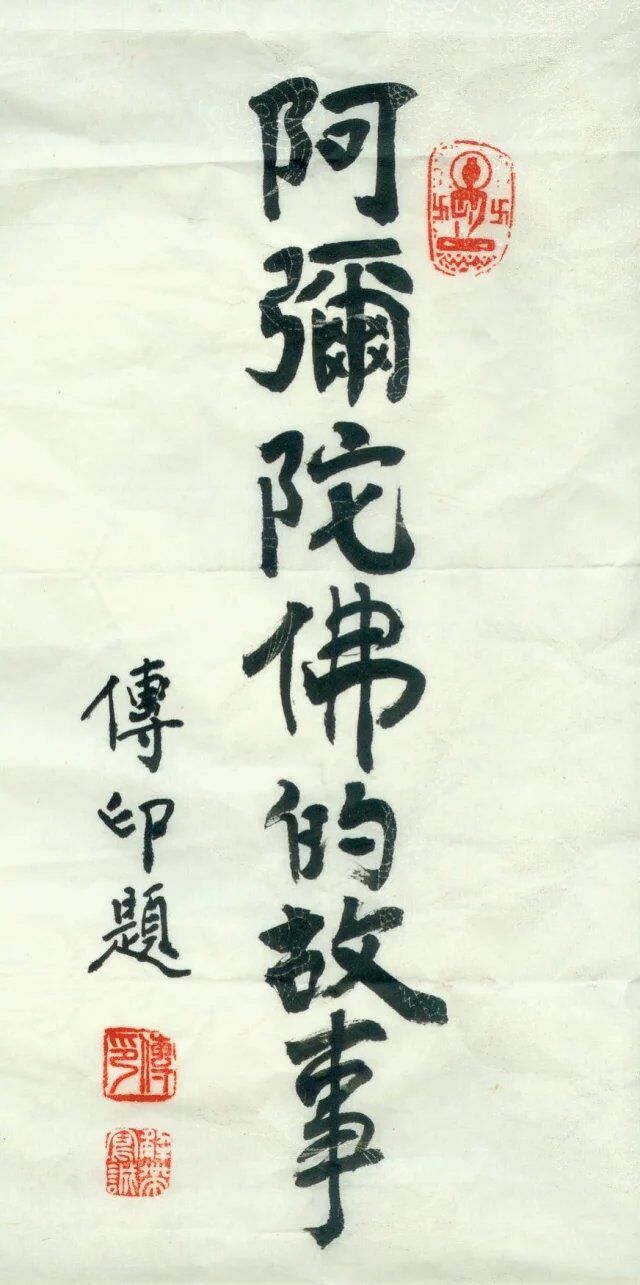 阿彌陀佛的故事
傳印題
傳印